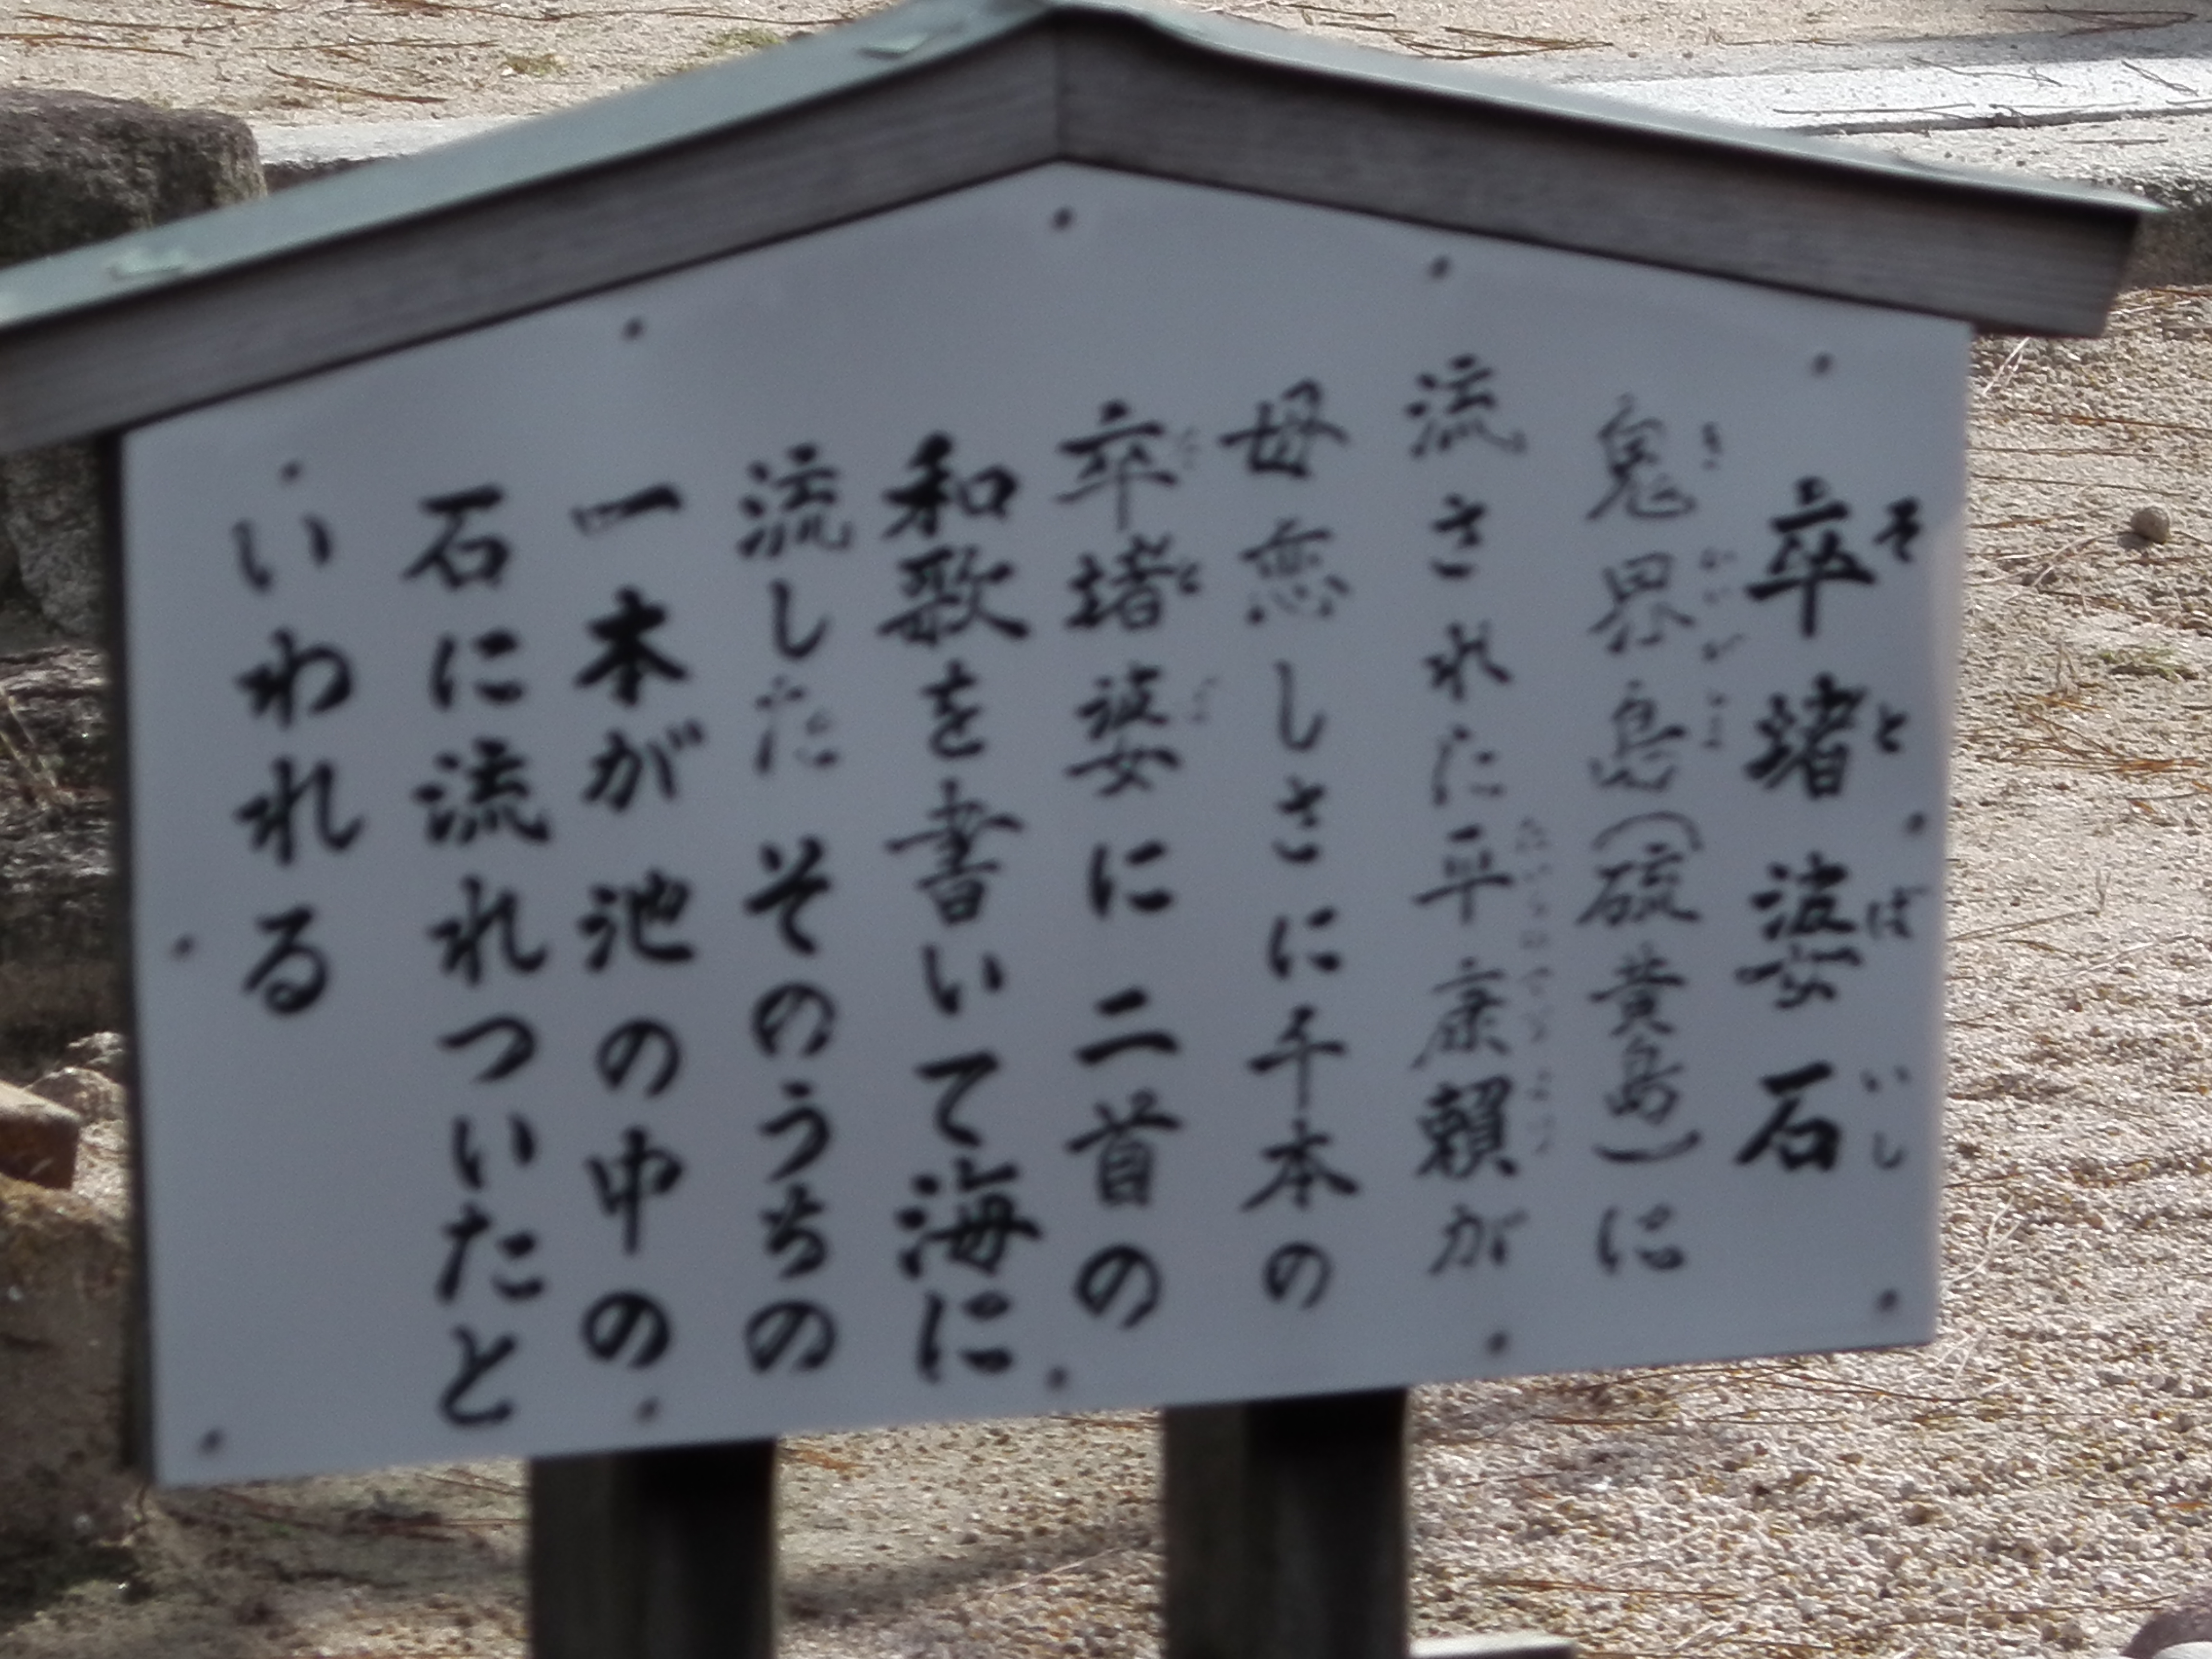 卒堵婆石
鬼界島(硫黄島)に
流された平康頼が
母恋しさに千本の
卒堵婆に二首の
和歌を書いて海に
流した そのうちの
一本が池の中の
石に流れついたと
いわれる